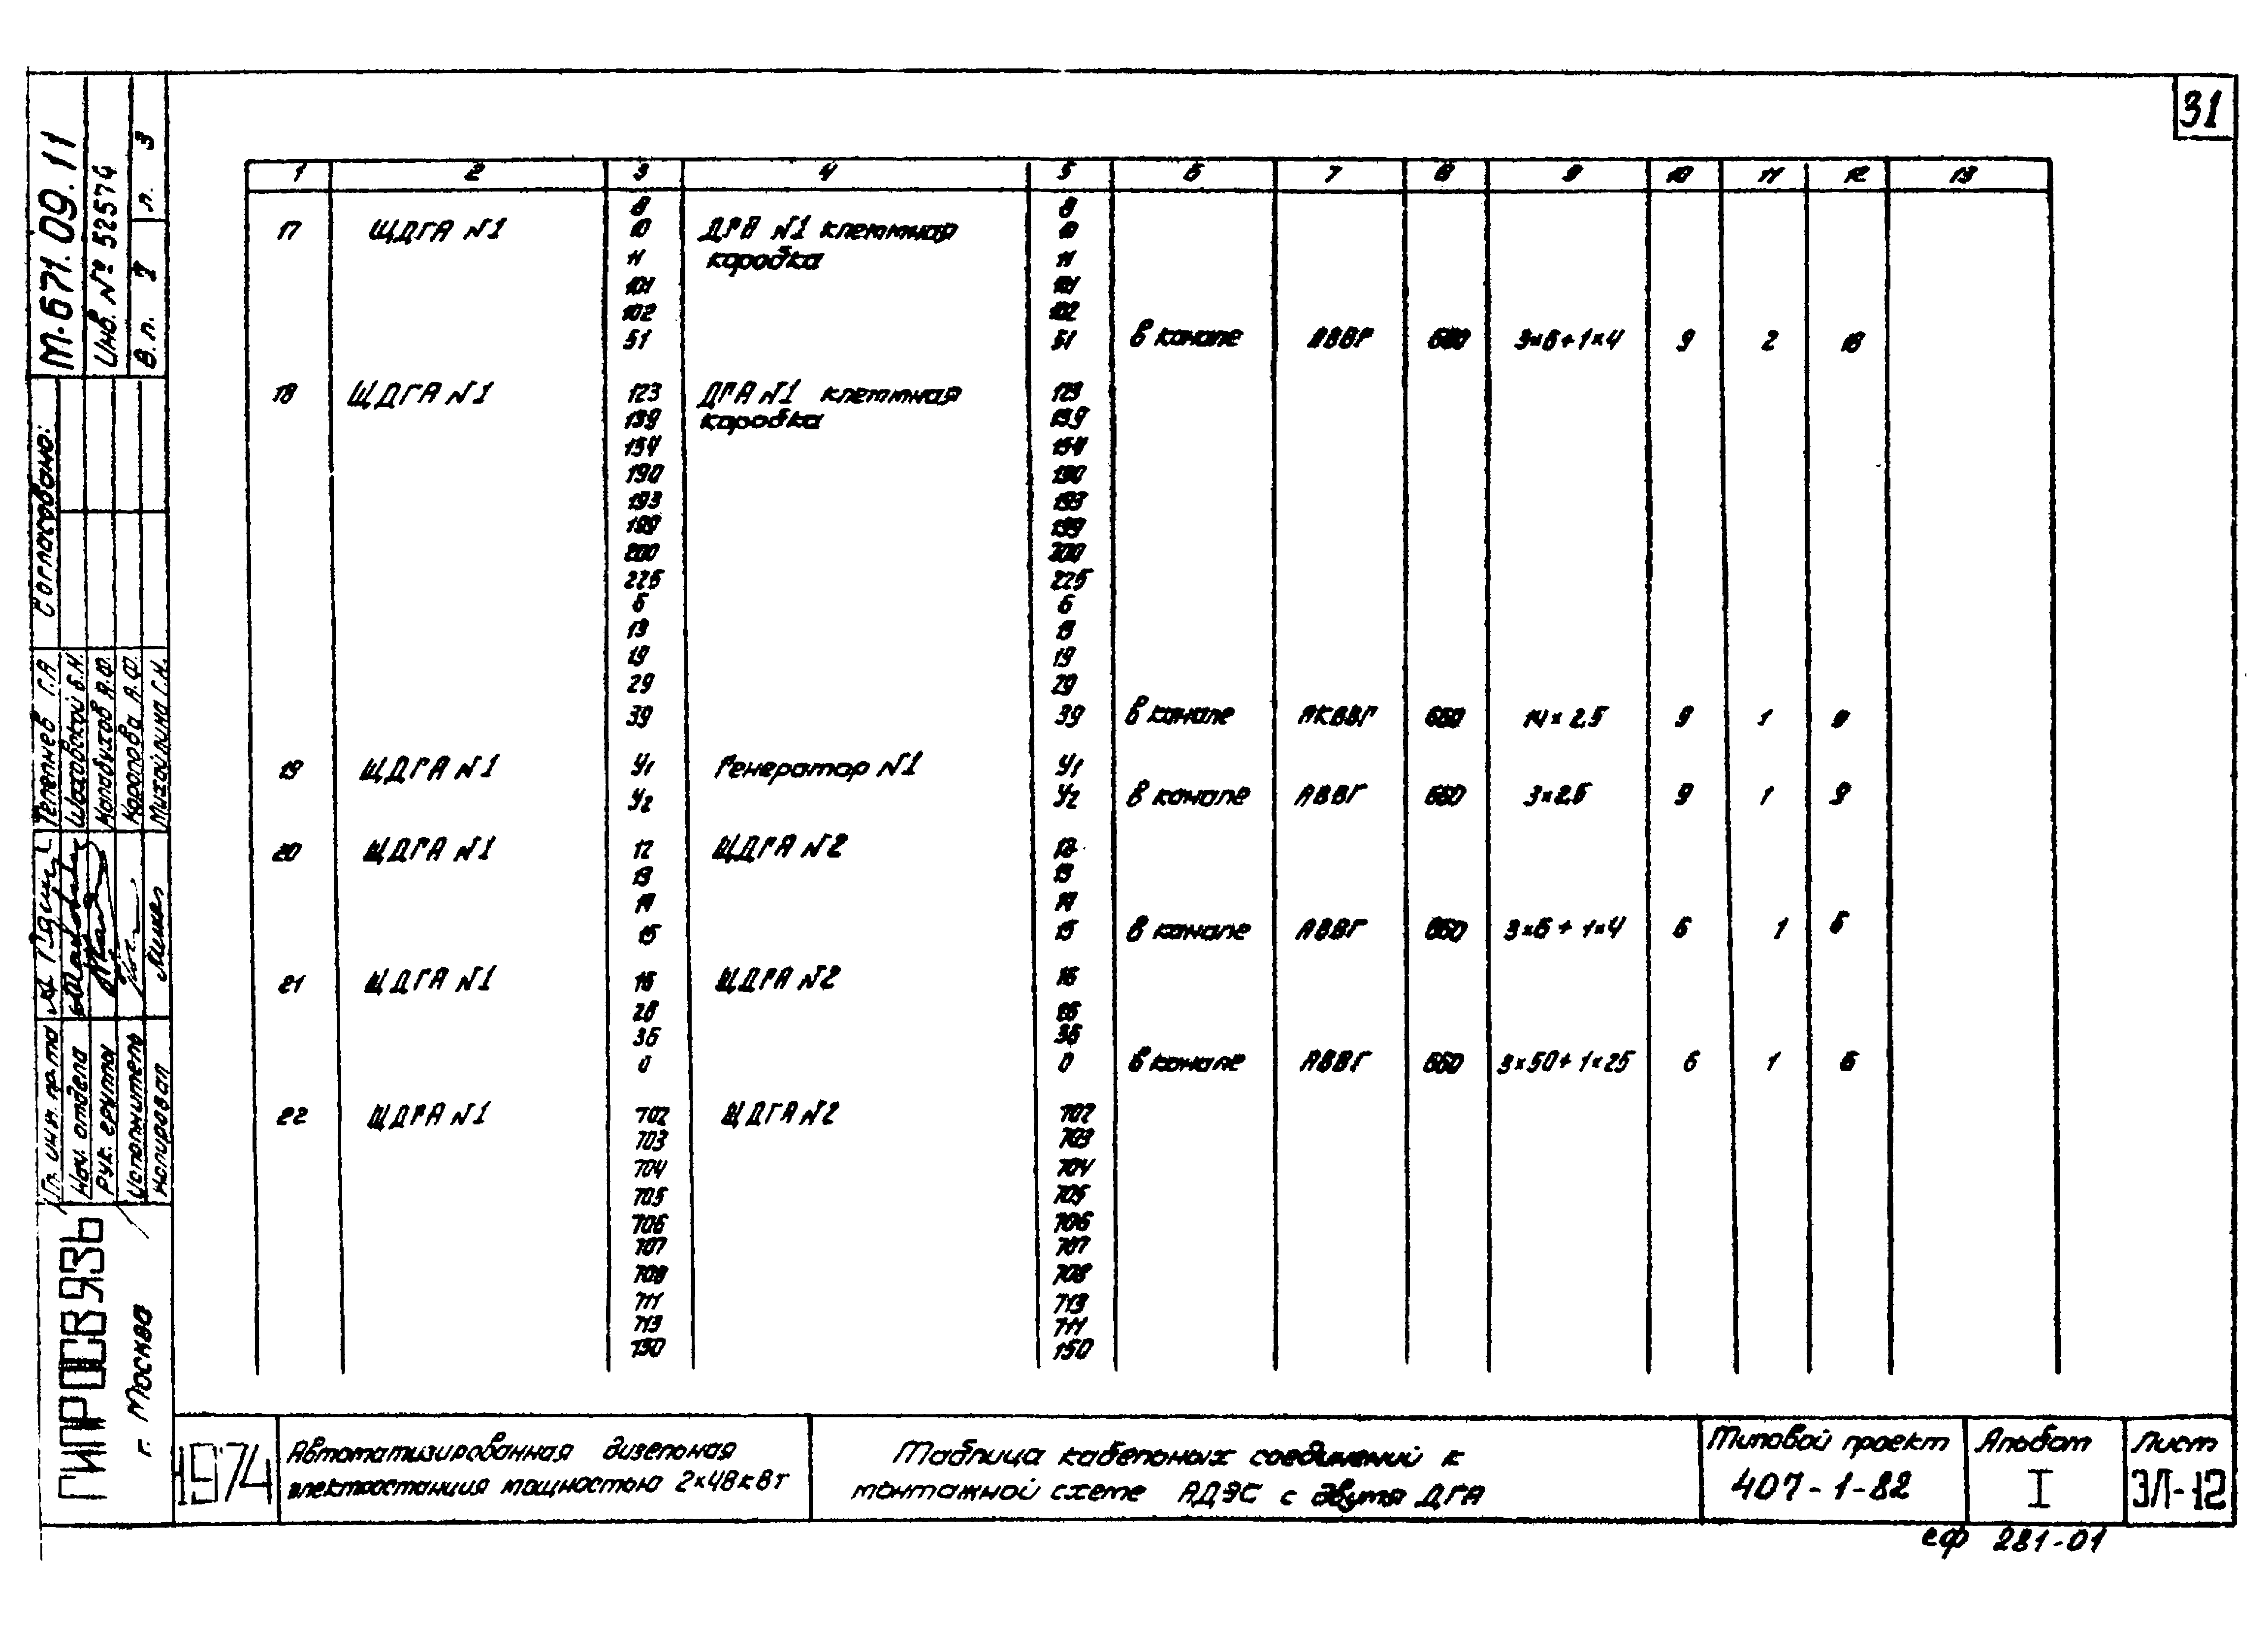 31
1 2 3 4 5 6 7 8 9 10 11 12 13
8 8
17 ЩДГА №1 10 ДГА №1 клеммная 10
11 коробка 11
101 101
102 102
51 51 в канале АВВГ 660 3×6+1×4 9 2 18
18 ЩДГА №1 123 ДГА №1 клеммная 123
139 коробка 139
154 154
190 190
193 193
199 199
200 200
225 225
6 6
13 13
19 19
29 29
39 39 в канале АКВВГ 660 14×2,5 9 1 9
19 ЩДГА №1 У1 Генератор №1 У1
У2 У2 в канале АВВГ 660 3×2,5 9 1 9
20 ЩДГА №1 12 ЩДГА №2 12
13 13
14 14
15 15 в канале АВВГ 660 3×6+1×4 6 1 6
21 ЩДГА №1 16 ЩДГА №2 16
26 26
36 36
0 0 в канале АВВГ 660 3×50+1×25 6 1 6
22 ЩДГА №1 702 ЩДГА №2 702
703 703
704 704
705 705
706 706
707 707
708 708
711 713
713 711
150 150
М.671.09.11
Инв. № 52574
В.л. 7 л. 3
Согласовано:
Гл. инж. пр-та Телепнев Г.А
Нач. отдела Шаховской Б.Н.
Рук. группы Калабухов А.Ф.
Исполнитель Каропова А.Ф.
Копировал Михайлина Г.К.
ГИПРОСВЯЗЬ
г. Москва
1974
Автоматизированная дизельная
электростанция мощностью 2×48кВт
Таблица кабельных соединений к
монтажной схеме АДЭС с двумя ДГА
Типовой проект
407-1-82
Альбом
I
Лист
ЭЛ-12
сф 281-01